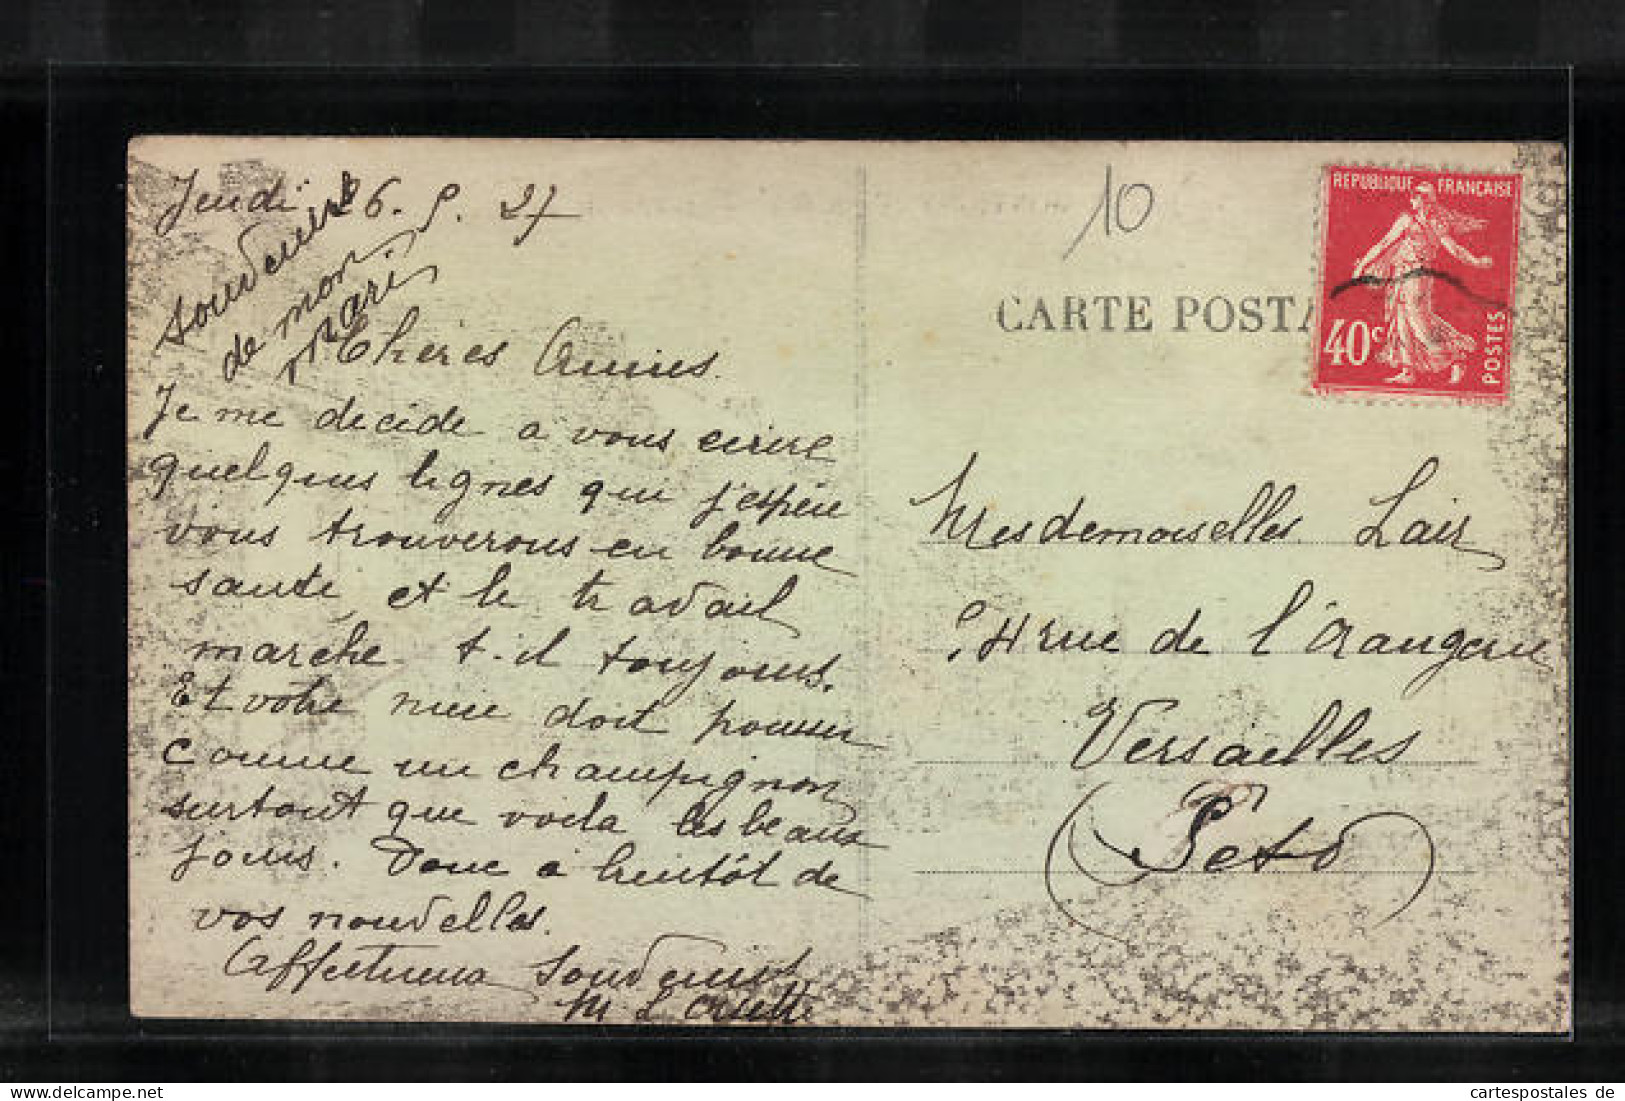 Jeudi 26. 5. 27
Souvenirs
de mon
Mari
Chères Amies.
Je me decide a vous ecrire
quelques lignes qui j'espère
vous trouverons en bonne
santé, et le travail
marche t-il toujours.
Et votre doit pousser
comme un champignon
surtout que voila les beaux
jours. Donc a bientôt de
vos nouvelles.
Affectueux Souvenirs
M L
10
CARTE POSTA
REPUBLIQUE FRANÇAISE
40c
POSTES
Mesdemoiselles Lair
rue de l'Orangerie
Versailles
S et O
cartespostales de